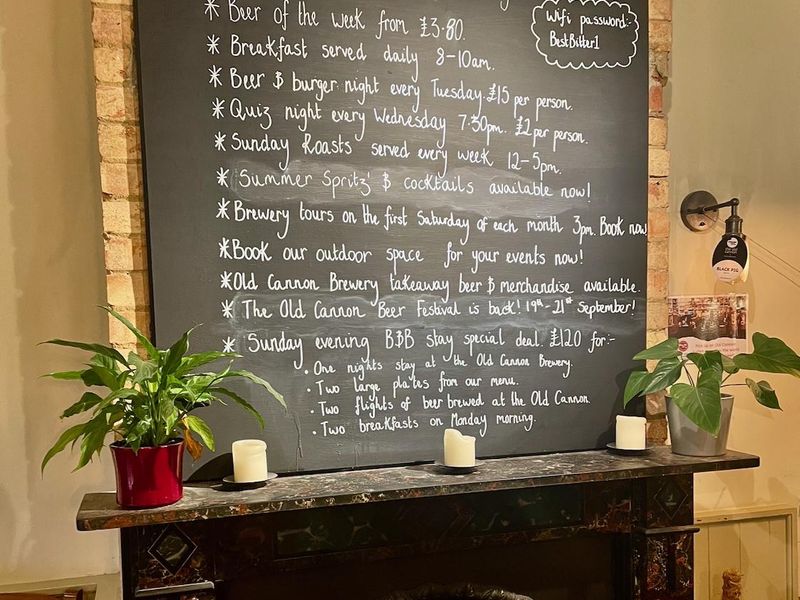 * Beer of the week from £3.80.
Wifi password:-
BestBitter1
* Breakfast served daily 8-10am.
* Beer & burger night every Tuesday. £15 per person.
* Quiz night every Wednesday 7:30pm. £2 per person.
* Sunday Roasts served every week 12-5pm.
* 'Summer Spritz' & cocktails available now!
* Brewery tours on the first Saturday of each month 3pm. Book now
* Book our outdoor space for your events now!
* Old Cannon Brewery takeaway beer & merchandise available.
* The Old Cannon Beer Festival is back! 19th-21st September!
* Sunday evening B&B stay special deal. £120 for:-
• One nights stay at the Old Cannon Brewery.
• Two large plates from our menu.
• Two flights of beer brewed at the Old Cannon.
• Two breakfasts on Monday morning.
BLACK PIG